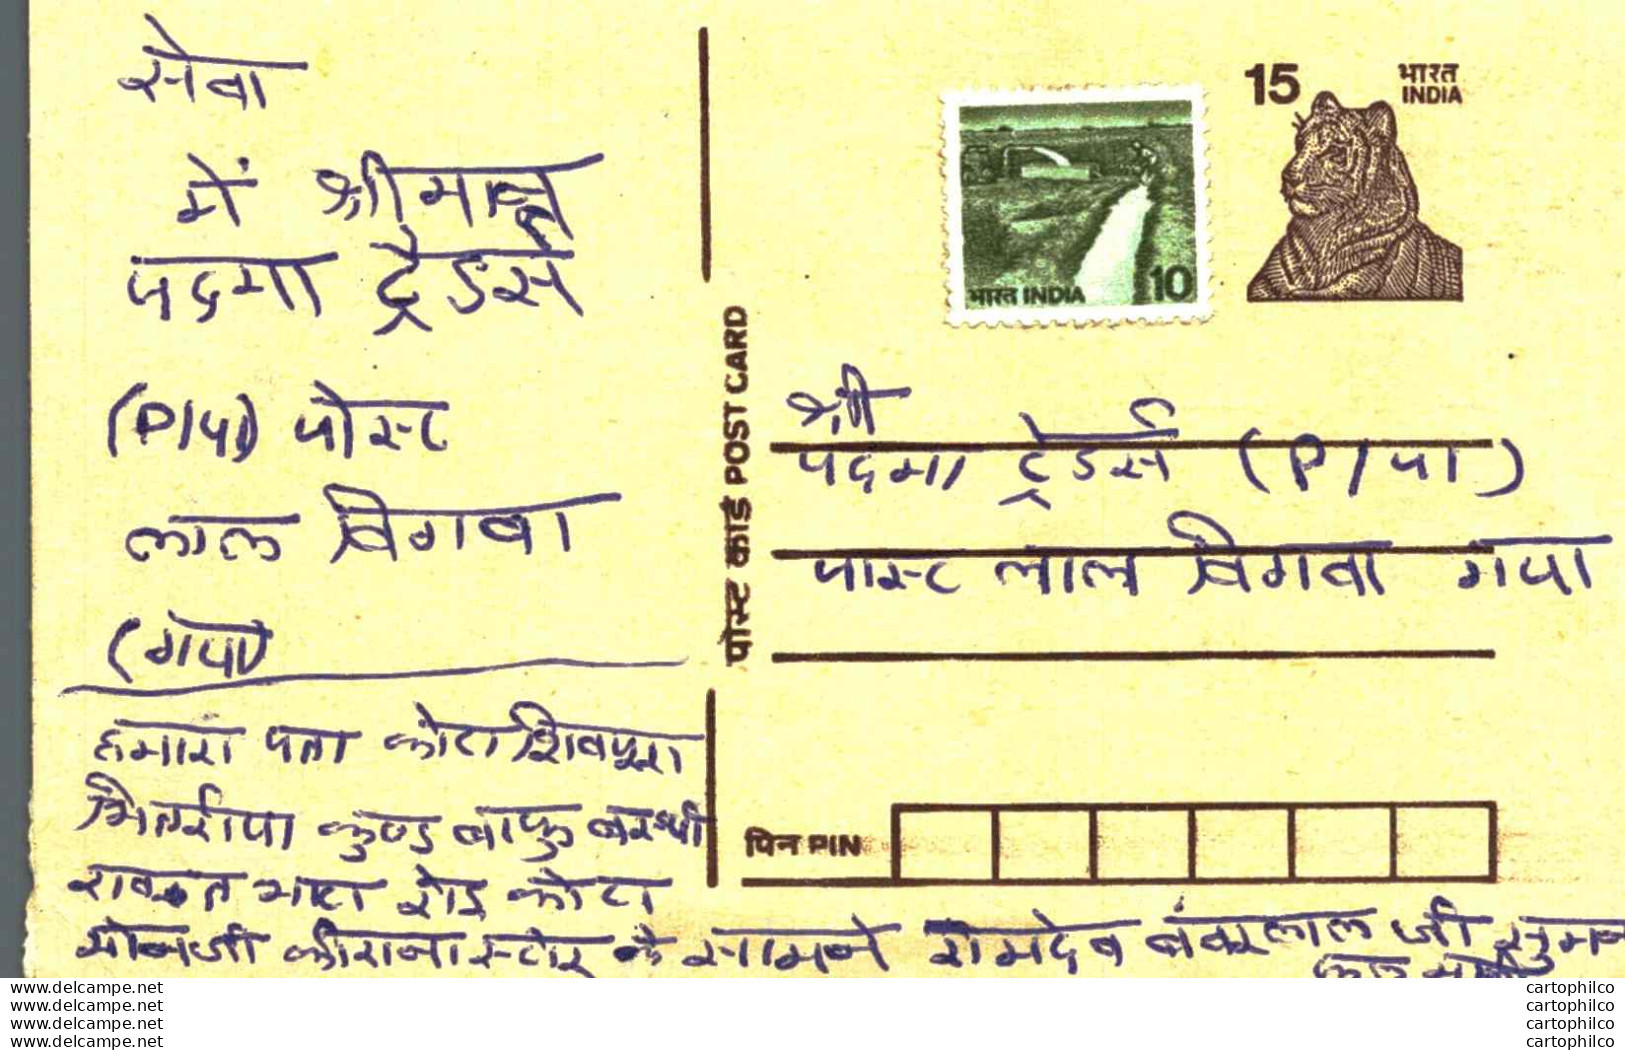 सेवा
में श्रीमान
पदमा ट्रेडर्स
(P/पा) पोस्ट
लाल बिगवा
(गया)
हमारा पता कोटा शिवपुरा
कुण्ड
रावत भाटा रोड कोटा
किराना स्टोर के सामने रामदेव भंवरलाल जी सुमन
पोस्ट कार्ड POST CARD
भारत INDIA 10
15 भारत
INDIA
श्री
पदमा ट्रेडर्स (P/पा)
पोस्ट लाल बिगवा गया
पिन PIN
www.delcampe.net cartophilco
www.delcampe.net cartophilco
www.delcampe.net cartophilco
www.delcampe.net cartophilco